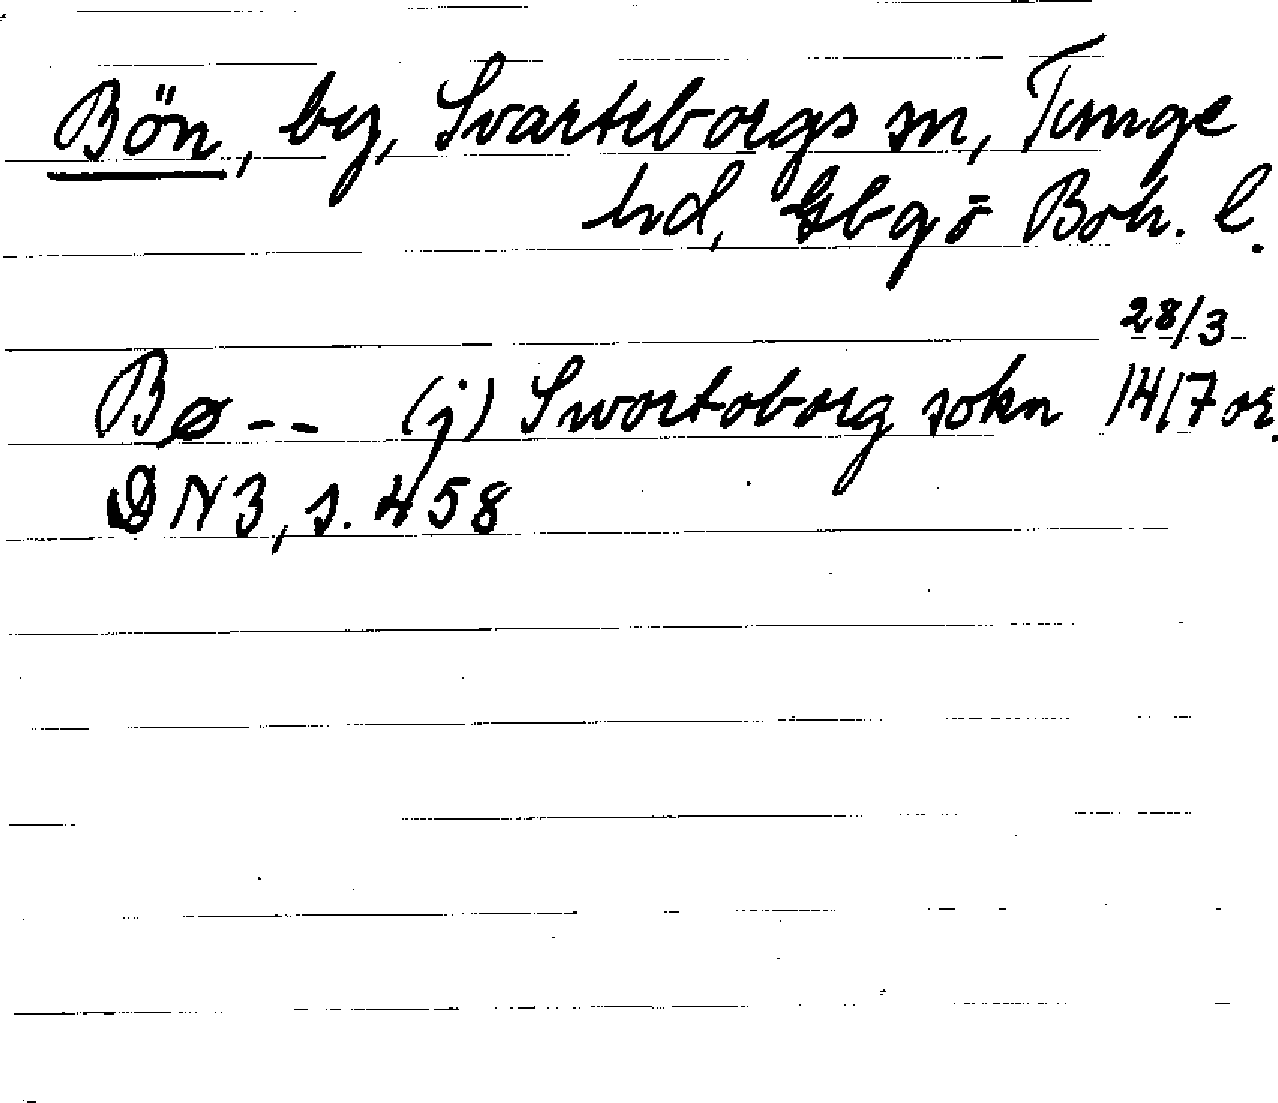 Bön, by, Svarteborgs sn, Tunge
hd, Gbgö Boh. l.
28/3
Bø-- (j) Swortoborg sokn 1417 or.
DN 3, s. 458